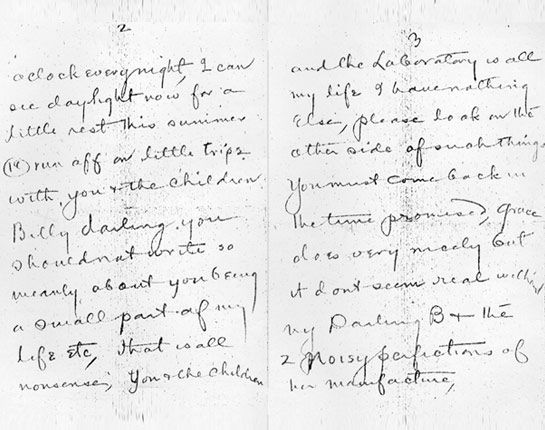 2
oclock every night, I can
see daylight now for a
little rest this summer
(14) run off on little trips
with, you & the children
Billy darling, you
should not write so
meanly about you being
a small part of my
life etc, that is all
nonsense; You & the Children
3
and the Laboratory is all
my life I have nothing
Else, please look on the
other side of such things
You must come back in
the time promised, Grace
does very nicely but
it dont seem real without
my Darling B & the
2 Noisy perfections of
her manufacture,